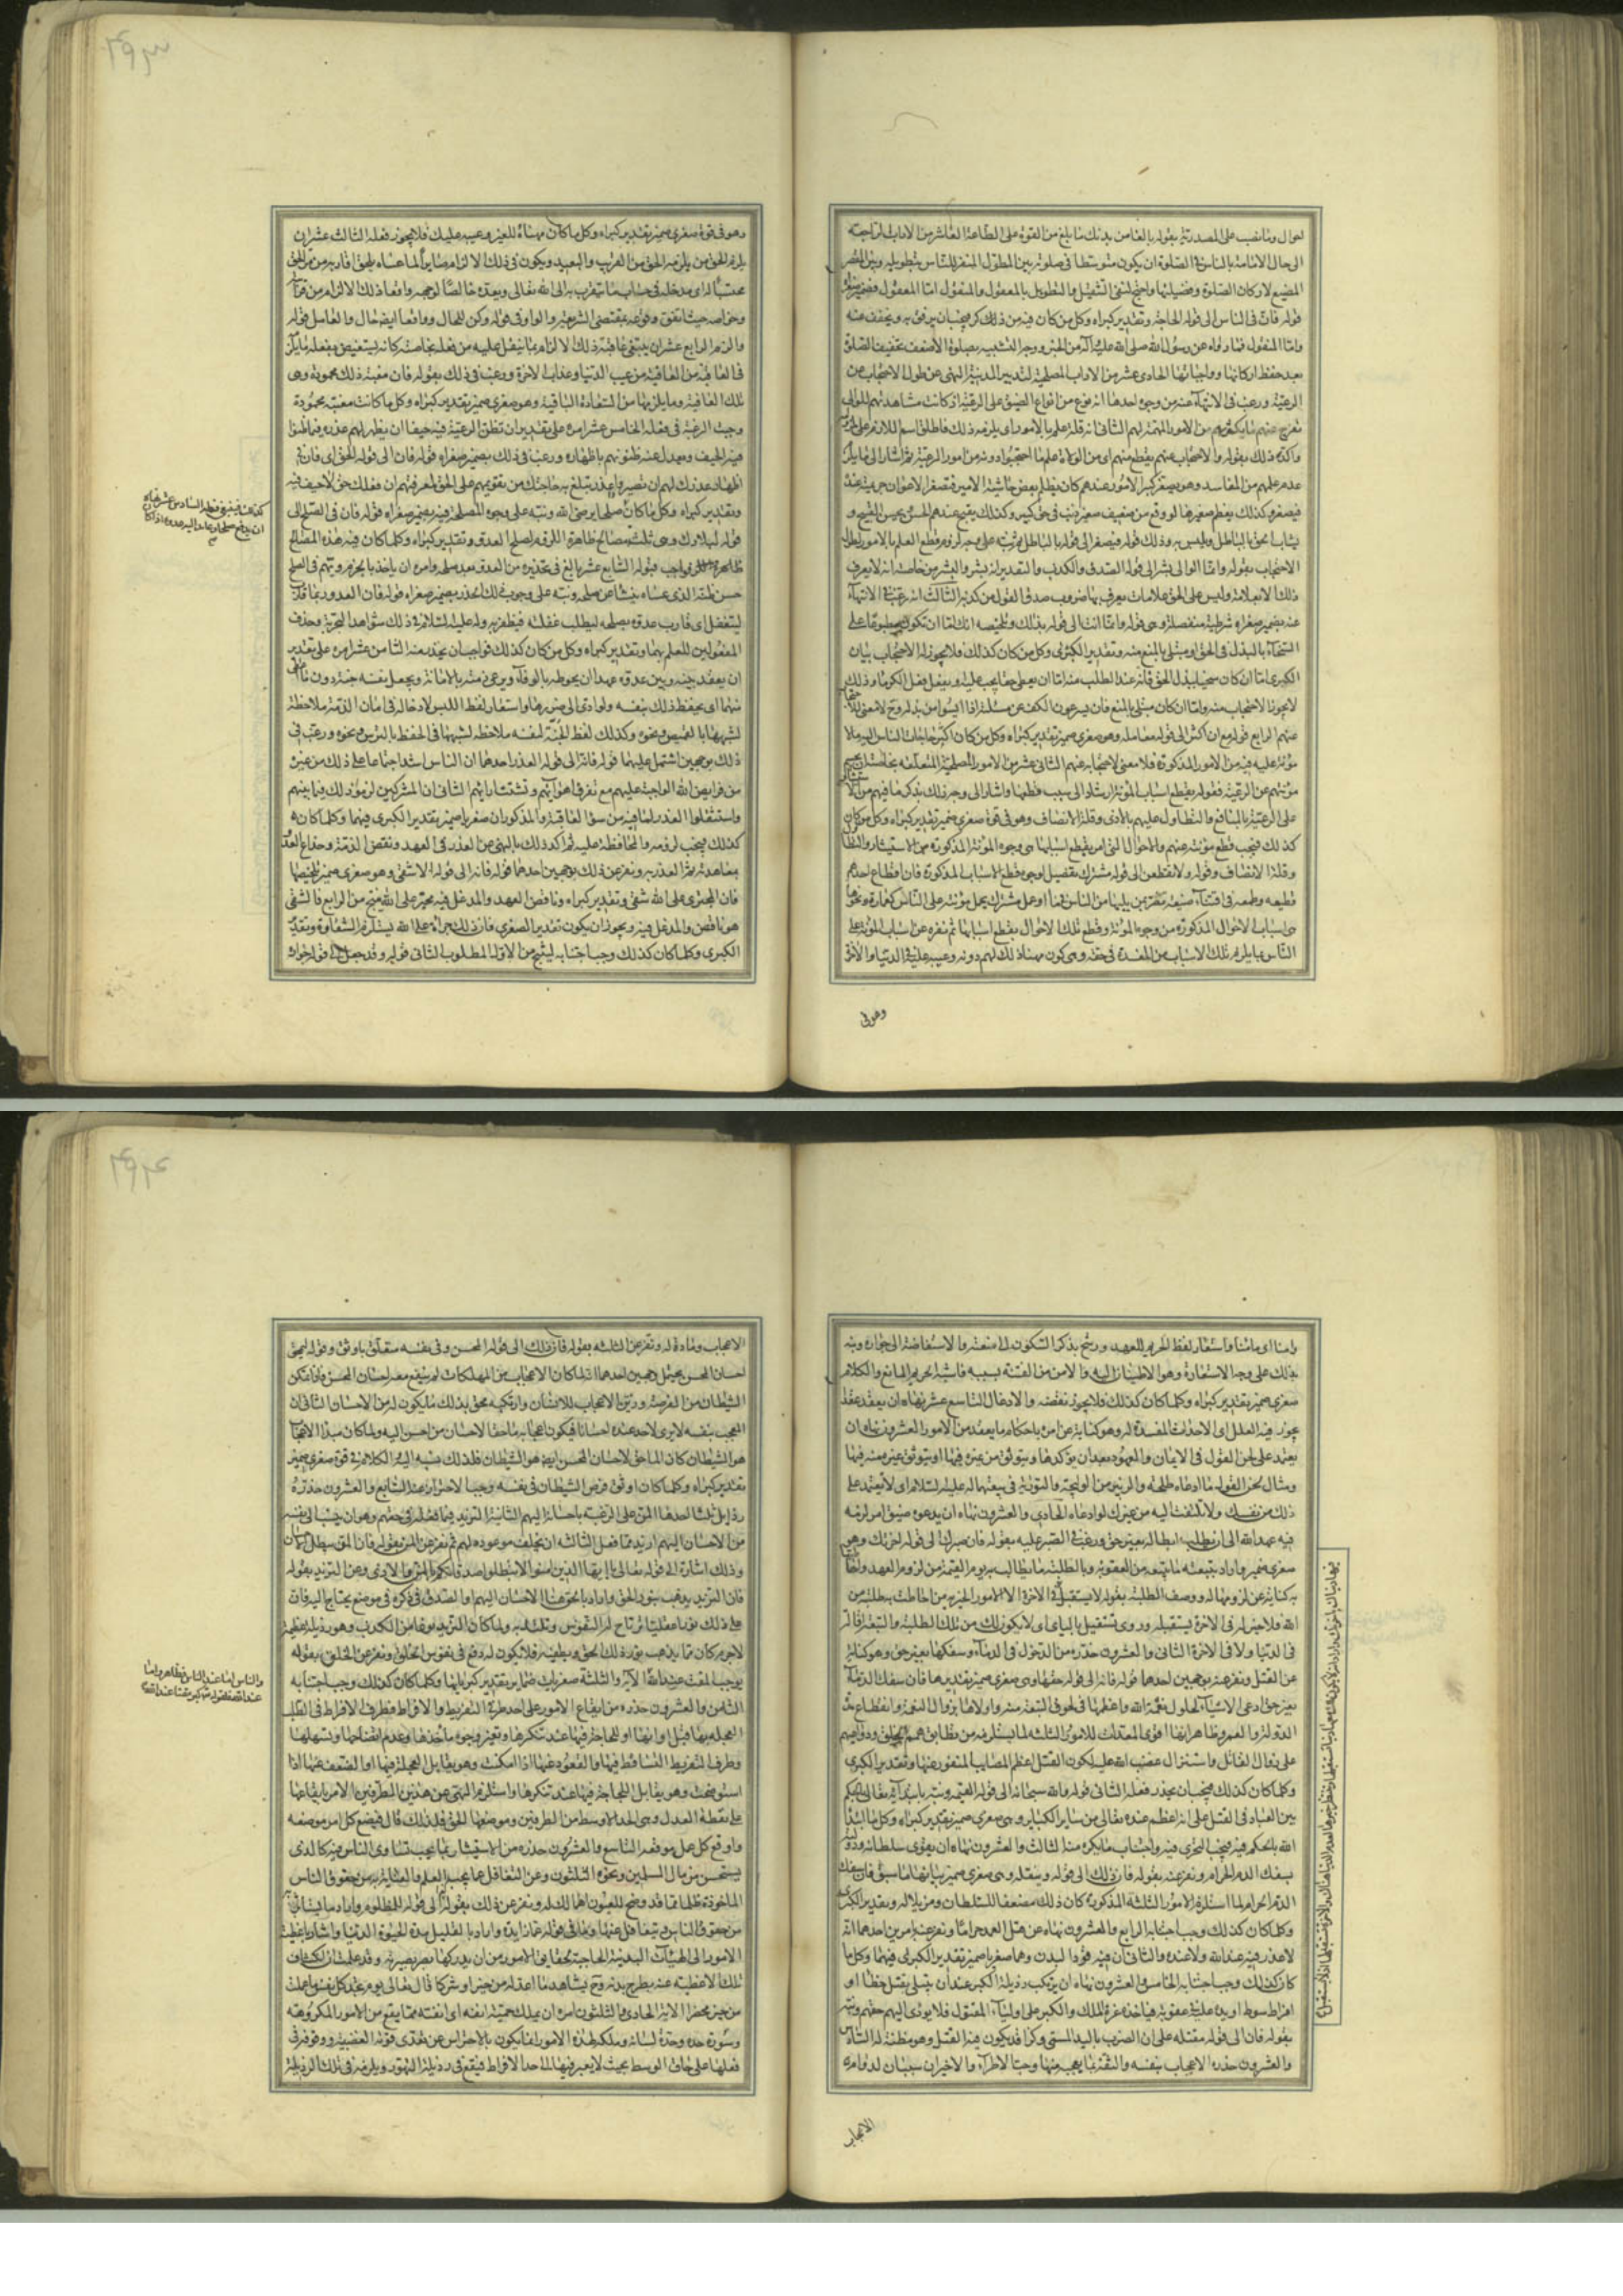 احوال وما نصب على المصدرية بقوله بالغا من بدنك ما بلغ من القوة على الطاعة العاشر من الاداب الراجعة
الى حال الامامة بالناس فى الصلوة ان يكون متوسطا فى صلوته بين المطول المنفر للناس بتطويله وبين المقصر
المضيع لاركان الصلوة وفضيلتها واحتج لنفى التثقيل والتطويل بالمعقول والمنقول اما المعقول
قوله فان فى الناس الى قوله الحاجة وتقدير كبراه وكل من كان فيه من ذلك كر فيجب ان يرفق به ويخفف عنه
واما المنقول فما رواه عن رسول الله صلى الله عليه وآله من الخبر ووجه التشبيه بصلوة الاضعف تخفيف الصلوة
بعد حفظ اركانها وواجباتها الحادى عشر من الاداب المصلحية لتدبير المدينة النهى عن طول الاحتجاب عن
الرعية ورغب فى الانتهاء عنه من وجوه احدها انه نوع من انواع الضيق على الرعية اذ كانت مشاهدتهم للوالى
تفرج عنهم ما يكربهم من الامور المهمة لهم الثانى انه قلة علم بالامور اى يلزمه ذلك فاطلق اسم اللازم على
واكد ذلك بقوله والاحتجاب منهم يقطع عنهم اى من الولاة علم ما احتجبوا دونه من امور الرعية ثم اشار الى ما يلزم
عدم علمهم من المفاسد وهو ان يصغر كبير الامور عندهم كان يظلم بعض حاشية الامير فتصغر الاعوان جريمته عنده
فيصغر وكذلك يعظم صغيرها لو وقع من ضعيف صغير ذنب فى حق كبير وكذلك يقبح عندهم الحسن ويحسن القبيح و
يشاب الحق بالباطل ويلبس به وذلك قوله فيصغر الى قوله بالباطل
الاحتجاب بقوله وانما الوالى بشر الى قوله الصدق والكذب والتقدير انه بشر والبشر من خاصته انه لا يعرف
ذلك الا بعلامة وليس على الحق علامات يعرف بها ضروب صدق القول من كذبه الثالث انه رغبه فى الانتهاء
عنه بضمير صغراه شرطية منفصلة وهى قوله وانما انت الى قوله بذلك وتلخيصه انك اما ان تكون مطبوعا على
السخاء بالبذل فى الحق او مبتلى بالمنع منه وتقدير الكبرى وكل من كان كذلك فلا يجوز له الاحتجاب بيان
الكبرى اما ان كان سخيا ببذل الحق فانه عند الطلب منه اما ان يعطى حقا يجب عليه او يفعل فعل الكرماء وذلك
لا يجوز الاحتجاب منه واما ان كان مبتلى بالمنع فان يسرعون الكف عن مسئلته اذا ايسوا من بذله وح لا معنى
عنهم الرابع قوله مع ان اكثر الى قوله معامله وهو صغرى ضمير تقدير كبراه وكل من كان اكثر حاجات الناس اليه ما لا
مؤنة عليه فيه من الامور المذكورة فلا معنى لاحتجابه عنهم الثانى عشر من الامور المصلحية المتعلقة بخاصته
مؤنتهم عن الرعية فقوله يقطع اسباب المؤنة ارشاد الى سبب قطعها واشار الى وجه ذلك بذكر ما فيهم من
على الرعية بالمنافع والتطاول عليهم بالاذى وقلة الانصاف وهو فى قوة صغرى ضمير تقدير كبراه وكل من كان
كذلك فيجب قطع مؤنته عنهم والاحوال التى امر بقطع اسبابها هى وجوه المؤنة المذكورة من الاستيثار والتطاول
وقلة الانصاف وقوله ولا تقطعن الى قوله مشترك تفصيل لوجوه قطع الاسباب المذكورة فان اقطاع احدهم
قطيعه وطمعه فى اقتناء ضيعة تضر بمن يليها من الناس فى ماء او عمل مشترك يحمل مؤنته على الناس كعمارة ونحوها
هى اسباب الاحوال المذكورة من وجوه المؤنة وقطع تلك الاحوال بقطع اسبابها ثم نفره عن اسباب المؤنة على
الناس بما يلزم تلك الاسباب من المفسدة فى حقه وهى كون مهنا ذلك لهم دونه وعيبه عليه فى الدنيا والاخرة
وهو فى
وهو فى قوة صغرى ضمير تقدير كبراه وكل ما كان مهناه للغير وعيبه عليك فلا يجوز فعله الثالث عشر ان
يلزم الحق من يلزمه الحق من القريب والبعيد ويكون فى ذلك الالزام صابرا لما عساه يلحق اقاربه من مر الحق
محتسبا له اى مدخله فى حساب ما يتقرب به الى الله تعالى ويعده خالصا لوجهه واقعا ذلك الالزام من قرابته
وخواصه حيث اتفق وقوعه بمقتضى الشريعة والواو فى قوله وكن للحال وواقعا ايضا حال والعامل قوله
والزم الرابع عشر ان يبتغى عاقبة ذلك الالزام بما يثقل عليه من فعله بخاصته كانه ليستعيض من فعله ما يكره
فى العاقبة من العافية من عيب الدنيا وعذاب الاخرة ورغب فى ذلك بقوله فان مغبة ذلك محمودة وهى
تلك العاقبة وما يلزمها من السعادة الباقية وهو صغرى ضمير تقدير كبراه وكل ما كانت مغبته محمودة
وجبت الرغبة فى فعله الخامس عشر امره على تقدير ان تظن الرعية فيه حيفا ان يظهر لهم عذره فيما ظنوا
فيه الحيف ويعدل عنه ظنونهم باظهاره ورغب فى ذلك بضمير صغراه قوله فان الى قوله الحق اى فان فى
اظهار عذرك لهم ان تصير واعذر تبلغ به حاجتك من تقويمهم على الحق لمعرفتهم ان فعلك حق لا حيف فيه
وتقدير كبراه وكل ما كان صلحا يرضى الله ونبه على وجوه المصلحة فيه بضمير صغراه قوله فان فى الصلح الى
قوله لبلادك وهى ثلث مصالح ظاهرة اللزوم لصلح العدو وتقدير كبراه وكلما كان فيه هذه المصالح
ظاهرة فواجب قبوله السابع عشر بالغ فى تحذيره من العدو بعد صلحه وامره ان ياخذ بالحزم ويتهم فى الصلح
حسن ظنه الذى عساه ينشا عن صلحه ونبه على وجوب ذلك الحذر بضمير صغراه قوله فان العدو ربما قارب
ليتغفل اى قارب عدوه بصلحه ليطلب غفلته فيظفر به وله عليه السلام فى ذلك شواهد التجربة وحذف
المفعولين للعلم بهما وتقدير كبراه وكل من كان كذلك فواجب ان يحذر منه الثامن عشر امره على تقدير
ان يعقد بينه وبين عدوه عهدا ان يحوطه بالوفاء ويرعى ذمته بالامانة ويجعل نفسه جنة دون ما
منهما اى يحفظ ذلك بنفسه ولو ادى الى ضررها واستعار لفظ اللبس لادخاله فى امان الذمة ملاحظة
لشبهها بالقميص ونحوه وكذلك لفظ الجنة لنفسه ملاحظة لشبهها فى الحفظ بالترس ونحوه ورغب فى
ذلك بوجهين اشتمل عليهما قوله فانه الى قوله الغدر احدهما ان الناس اشد اجتماعا على ذلك من غيره
من فرايض الله الواجبة عليهم مع تفرق اهوائهم وتشتت ارائهم الثانى ان المشركين لزموا ذلك فيما بينهم
واستثقلوا الغدر لما فيه من سوء العاقبة والمذكوران صغريا ضمير تقدير الكبرى فيهما وكلما كان
كذلك فيجب لزومه والمحافظة عليه ثم اكد ذلك بالنهى عن الغدر فى العهد ونقض الذمة وخداع العدو
بمعاهدته ثم الغدر به ونفر عن ذلك بوجهين احدهما قوله فانه الى قوله الا شقى وهو صغرى ضمير تلخيصها
فان المجترى على الله شقى وتقدير كبراه وناقض العهد والمدغل فيه مجتر على الله فينتج من الرابع فالشقى
هو ناقض والمدغل فيه ويجوز ان يكون تقدير الصغرى فان ذلك جراة على الله يستلزم الشقاوة وتقدير
الكبرى وكلما كان كذلك وجب اجتنابه لينتج من الاول المطلوب الثانى قوله وقد جعل الى قوله جواره
كذلك فينبغى فعله السادس عشر نهاه
ان يدفع صلحا دعاه اليه عدوه اذا كان
بامنا اى مامنا واستعار لفظ الحريم للعهد ورشح بذكر السكون الى منعته والاستفاضة الى جواره ونبه
بذلك على وجه الاستعارة وهو الاطمينان اليه والامن من الفتنة بسببه فاشبه الحريم المانع والكلام
صغرى ضمير تقدير كبراه وكلما كان كذلك فلا يجوز نقضه والادغال التاسع عشر نهاه ان يعقد عقدا
يجوز فيه العلل اى الاحداث المفسدة له وهو كناية عن امره باحكام ما يعقد من الامور العشرون نهاه ان
يعتمد على لحن القول فى الايمان والعهود بعد ان يؤكدها ويتوثق من غيره فيها او يتوثق غيره منه فيها
ومثال لحن القول ما ادعاه طلحة والزبير من الوليجة والتورية فى بيعتهما له عليه السلام اى لا تعتمد على
ذلك من نفسك ولا تلتفت اليه من غيرك لو ادعاه الحادى والعشرون نهاه ان يدعوه ضيق امر لزمه
فيه عهد الله الى ان يطلب ابطاله بغير حق ورغبه فى الصبر عليه بقوله فان صبرك الى قوله اخرتك وهو
صغرى ضمير واراد بتبعته ما يتبعه من العقوبة وبالطلبة ما يطالب به يوم القيمة من لزوم العهد
به كناية عن لزومها له ووصف الطلبة بقوله لا يستقبل فى الاخرة الا الامور الخيرية من احاطت به طلبة من
الله فلا خير له فى الاخرة يستقبله وروى تستقيل بالياى اى لا يكون لك من تلك الطلبة والتبعة اقالة
فى الدنيا ولا فى الاخرة الثانى والعشرون حذره من الدخول فى الدماء وسفكها بغير حق وهو كناية
عن القتل ونفر عنه بوجهين احدهما قوله فانه الى قوله حقها وهى صغرى ضمير تقديرها فان سفك الدماء
بغير حق ادعى الاشياء لحلول نقمة الله واعظمها فى لحوق التبعة منه واولاها بزوال النعمة وانقطاع مدة
الدولة والعمر وظاهر انها اقوى المعدات للامور الثلثة لما يستلزمه من تطابق همم الخلق ودواعيهم
على زوال القاتل واستنزال غضب الله عليه لكون القتل اعظم المصايب المنفور عنها وتقدير الكبرى
وكلما كان كذلك فيجب ان يحذر فعله الثانى قوله والله سبحانه الى قوله القيمة ونبه بابتداية تعالى بالحكم
بين العباد فى القتل على انه اعظم عنده تعالى من ساير الكباير وهى صغرى ضمير تقدير كبراه وكل ما ابتدا
الله بالحكم فيه فيجب التحرى فيه واجتناب ما يكره منه الثالث والعشرون نهاه ان يقوى سلطانه ودولته
بسفك الدم الحرام ونفر عنه بقوله فان ذلك الى قوله وينقله وهى صغرى ضمير بيانها ما سبق فان سفك
الدم الحرام لما استلزم الامور الثلثة المذكورة كان ذلك مضعفا للسلطان ومزيلا له وتقدير الكبرى
وكلما كان كذلك وجب اجتنابه الرابع والعشرون نهاه عن قتل العمد حراما ونفر عنه بامرين احدهما انه
لا عذر فيه عند الله ولا عنده والثانى ان فيه قود البدن وهما صغريا ضمير تقدير الكبرى فيهما وكل ما
كان كذلك وجب اجتنابه الخامس والعشرون نهاه ان يرتكب رذيلة الكبر عند ان يبتلى بقتل خطأ او
افراط سوط او يد عليه فى عقوبة فياخذه عزة الملك والكبر على اولياء المقتول فلا يودى اليهم حقهم ونبه
بقوله فان الى قوله مقتلة على ان الضرب باليد المسمى وكزا قد يكون فيه القتل وهو مظنة له السادس
والعشرون حذره الاعجاب بنفسه والثقة بما يعجبه منها وحب الاطراء والاخيران سببان لدوام
الاعجاب
الاعجاب ومادة له ونفر عن الثلثة بقوله فان ذلك الى قوله المحسن وفى نفسه متعلق باوثق وقوله ليمحق
احسان المحسن يحتمل وجهين احدهما انه لما كان الاعجاب من المهلكات لم ينفع معه احسان المحسن فاذا تمكن
الشيطان من الفرصة وزين الاعجاب للانسان وارتكبه محق بذلك ما يكون له من الاحسان الثانى ان
المعجب بنفسه لا يرى لاحد عنده احسانا فيكون اعجابه ماحقا لاحسان من احسن اليه ولما كان مبدا الاعجاب
هو الشيطان كان الماحق لاحسان المحسن ايضا هو الشيطان فلذلك نسبه اليه والكلام فى قوة صغرى ضمير
تقدير كبراه وكلما كان اوثق فرص الشيطان فى نفسه وجب الاحتراز عنه السابع والعشرون حذره
رذايل ثلثا احدها المن على الرعية باحسانه اليهم الثانية التزيد فيما فعله فى حقهم وهو ان ينسب الى نفسه
من الاحسان اليهم ازيد مما فعل الثالثة ان يخلف موعوده لهم ثم نفر عن المن بقوله فان المن يبطل الاحسان
وذلك اشارة الى قوله تعالى يا ايها الذين امنوا لا تبطلوا صدقاتكم بالمن والاذى وعن التزيد بقوله
فان التزيد يذهب بنور الحق واراد بالحق هنا الاحسان اليهم والصدق فى ذكره فى موضع يحتاج اليه فان
على ذلك نورا عقليا ترتاح له النفوس وتلتذ به ولما كان التزيد نوعا من الكذب وهو رذيلة عظيمة
لا جرم كان مما يذهب نور ذلك الحق ويطفيه فلا يكون له وقع فى نفوس الخلق ونفر عن الخلف بقوله
يوجب المقت عند الله الاية والثلثة صغريات ضماير تقدير كبرياتها وكلما كان كذلك وجب اجتنابه
الثامن والعشرون حذره من ايقاع الامور على احد طرفى التفريط والافراط فطرف الافراط فى الطلب
العجلة بها قبل اوانها او اللجاجة فيها عند تنكرها وتغير وجوه ماخذها وعدم اتضاحها وتسهلها
وطرف التفريط التساقط فيها والقعود عنها اذا امكنت وهو يقابل العجلة فيها او الضعف عنها اذا
استوضحت وهو يقابل اللجاجة فيها عند تنكرها واستلزم النهى عن هذين الطرفين الامر بايقاعها
على نقطة العدل وهى الحد الاوسط من الطرفين وموضعها الحق فلذلك قال فضع كل امر موضعه
واوقع كل عمل موقعه التاسع والعشرون حذره من الاستيثار بما يجب تساوى الناس فيه كالذى
يستحسن من مال المسلمين ونحوه الثلثون وعن التغافل عما يجب العلم والعناية به من حقوق الناس
الماخوذة ظلما مما قد وضح للعيون اهمالك له ونفر عن ذلك بقوله الى قوله للمظلوم واراد ما يستاثر
من حقوق الناس ويتغافل عنها وما فى قوله عما زايدة واراد بالقليل مدة الحيوة الدنيا واشار باغطية
الامور الى الهيئات البدنية الحاجبة لحقايق الامور من ان يدركها بصر بصيرته وقد علمت ان انكشاف
تلك الاغطية عنه بطرح بدنه وح يشاهد ما اعد له من خير او شر كما قال تعالى يوم تجد كل نفس ما عملت
من خير محضرا الاية الحادى والثلثون امره ان يملك حمية انفه اى انفته مما يقع من الامور المكروهة
وسورة حده وحدة لسانه وملكه لهذه الامور انما يكون بالاحتراس عن تعدى قوته الغضبية ووقوفه فى
فعلها على حاق الوسط بحيث لا يعبر فيها الى حد الافراط فيقع فى رذيلة التهور ويلزمه فى تلك الرذيلة
والناس اما عند الناس فظاهر واما
عند الله فلقوله تعالى كبر مقتا عند الله